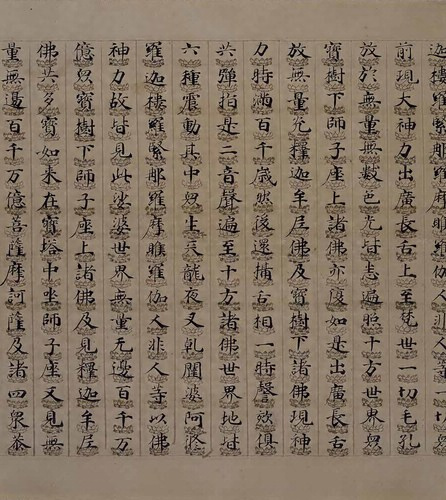 迦樓羅緊那羅摩睺羅伽人非人等一切衆
前現大神力出廣長舌上至梵世一切毛孔
放於無量無數色光皆悉遍照十方世界衆
寶樹下師子座上諸佛亦復如是出廣長舌
放無量光釋迦牟尼佛及寶樹下諸佛現神
力時滿百千歲然後還攝舌相一時謦欬俱
共彈指是二音聲遍至十方諸佛世界地皆
六種震動其中衆生天龍夜叉乾闥婆阿修
羅迦樓羅緊那羅摩睺羅伽人非人等以佛
神力故皆見此娑婆世界無量无邊百千万
億衆寶樹下師子座上諸佛及見釋迦牟尼
佛共多寶如來在寶塔中坐師子座又見無
量無邊百千万億菩薩摩訶薩及諸四衆恭